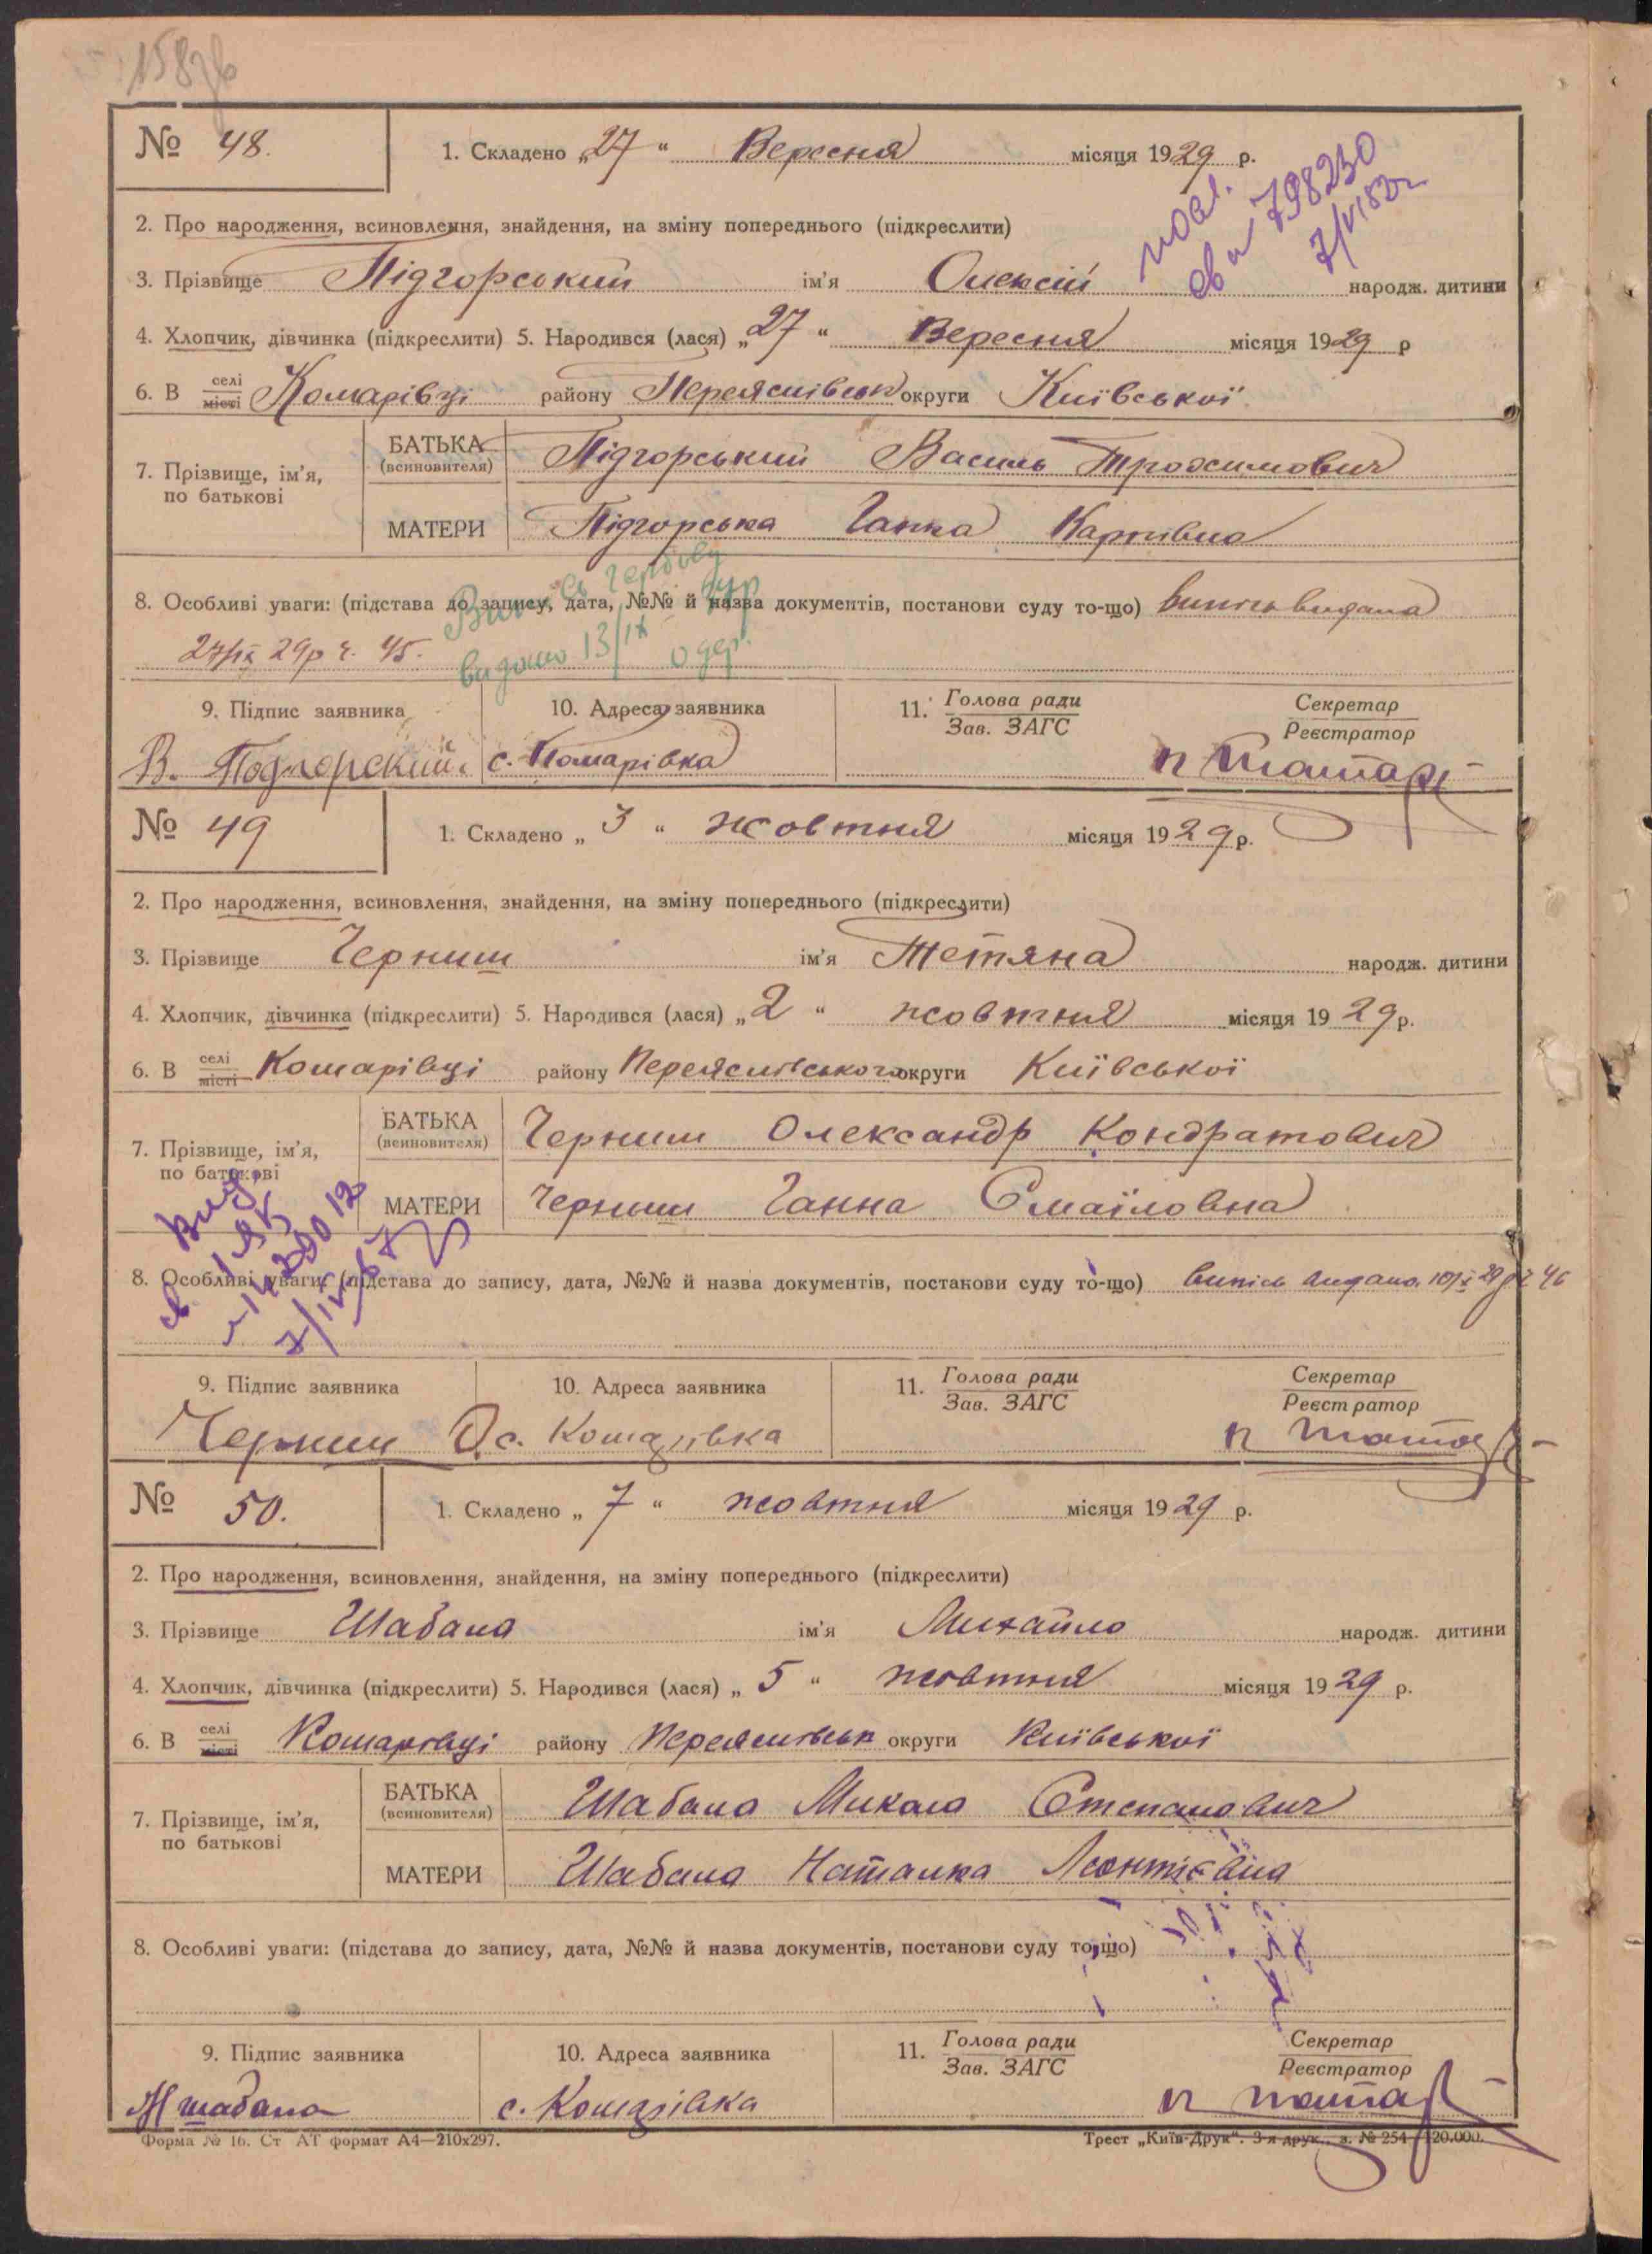 158зв
№ 48.
1. Складено „27“ Вересня місяця 1929 р.
2. Про народження, всиновлення, знайдення, на зміну попереднього (підкреслити)
3. Прізвище Підгорський ім'я Олексій народж. дитини
798230
4. Хлопчик, дівчинка (підкреслити) 5. Народився (лася) „27“ Вересня місяця 1929 р
6. В селі місті Комарівці району Переяслівськ округи Київської
7. Прізвище, ім'я, по батькові
БАТЬКА (всиновителя) Підгорський Василь Трохимович
МАТЕРИ Підгорська Ганна Карпівна
8. Особливі уваги: (підстава до запису, дата, №№ й назва документів, постанови суду то-що) випись видана
27/ІХ 29р ч. 45.
видано 13/ІХ
9. Підпис заявника 10. Адреса заявника 11. Голова ради Зав. ЗАГС Секретар Реєстратор
В. Подгорский с. Комарівка
№ 49
1. Складено „3“ жовтня місяця 1929 р.
2. Про народження, всиновлення, знайдення, на зміну попереднього (підкреслити)
3. Прізвище Черниш ім'я Тетяна народж. дитини
4. Хлопчик, дівчинка (підкреслити) 5. Народився (лася) „2“ жовтня місяця 1929 р.
6. В селі місті Комарівці району Переяслівського округи Київської
7. Прізвище, ім'я, по батькові
БАТЬКА (всиновителя) Черниш Олександр Кондратович
МАТЕРИ Черниш Ганна
8. Особливі уваги: (підстава до запису, дата, №№ й назва документів, постанови суду то-що) випись видана 10/Х 29р ч 46
9. Підпис заявника 10. Адреса заявника 11. Голова ради Зав. ЗАГС Секретар Реєстратор
Черниш О. с. Комарівка
№ 50.
1. Складено „7“ жовтня місяця 1929 р.
2. Про народження, всиновлення, знайдення, на зміну попереднього (підкреслити)
3. Прізвище Шабала ім'я Михайло народж. дитини
4. Хлопчик, дівчинка (підкреслити) 5. Народився (лася) „5“ жовтня місяця 1929 р.
6. В селі місті Комарівці району Переяслівськ округи Київської
7. Прізвище, ім'я, по батькові
БАТЬКА (всиновителя) Шабала Микола Степанович
МАТЕРИ Шабала Наталка Леонтієвна
8. Особливі уваги: (підстава до запису, дата, №№ й назва документів, постанови суду то-що)
9. Підпис заявника 10. Адреса заявника 11. Голова ради Зав. ЗАГС Секретар Реєстратор
М Шабала с. Комарівка
Форма № 16. Ст АТ формат А4—210х297.
Трест „Київ-Друк“. 3-я друк., з. № 254—120.000.